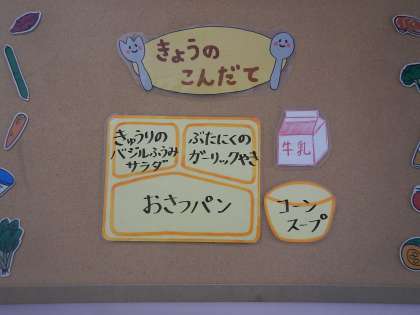 きょうの
こんだて
きゅうりの
バジルふうみ
サラダ
ぶたにくの
ガーリックやき
牛乳
おさつパン
コーン
スープ